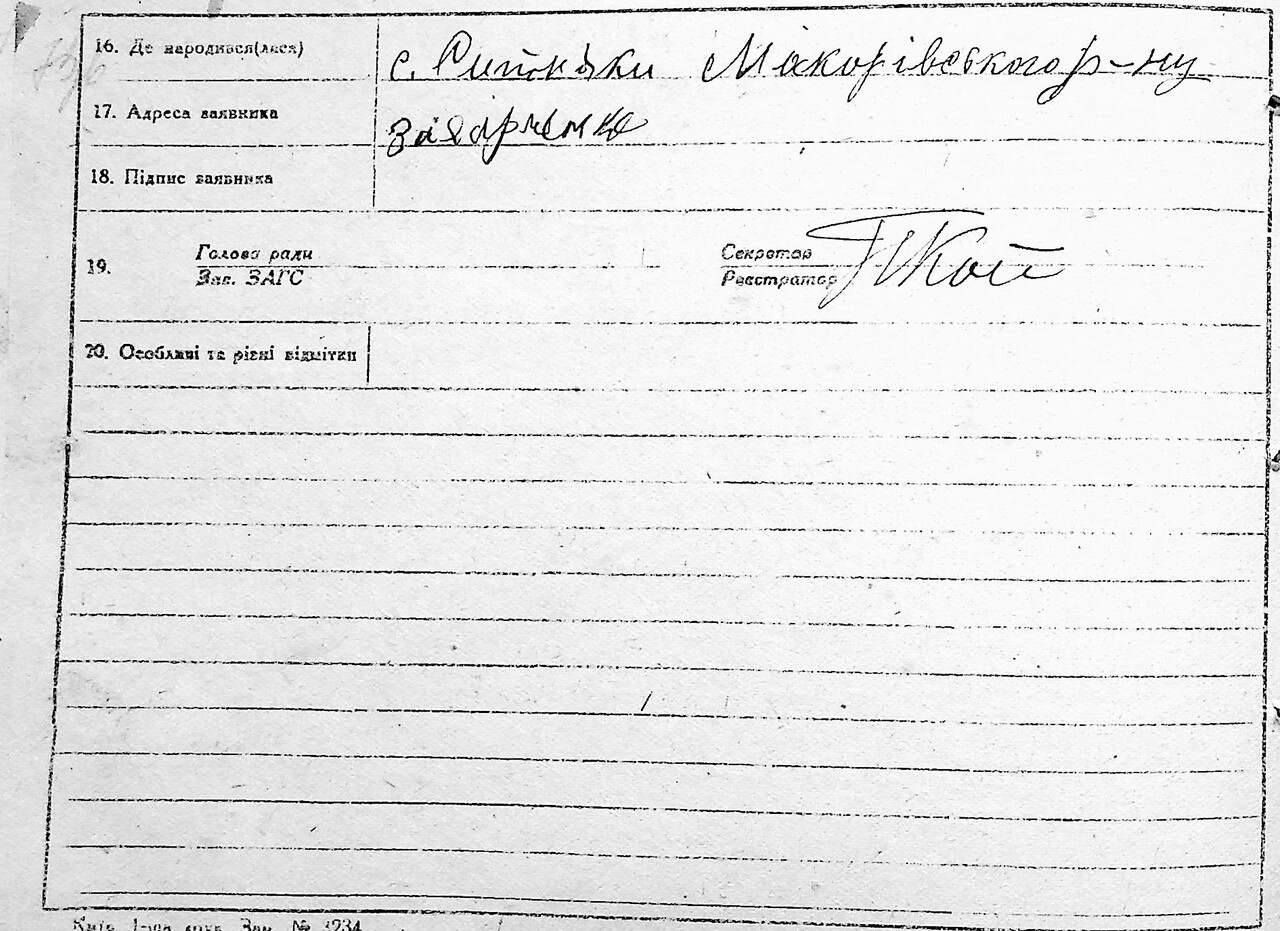 16. Де народився(лася) с. Ситняки Макарівського р-ну
17. Адреса заявника
18. Підпис заявника
19. Голова ради Секретар
Зав. ЗАГС Реєстратор
20. Особливі та різні відмітки
Київ Зам. № 3234